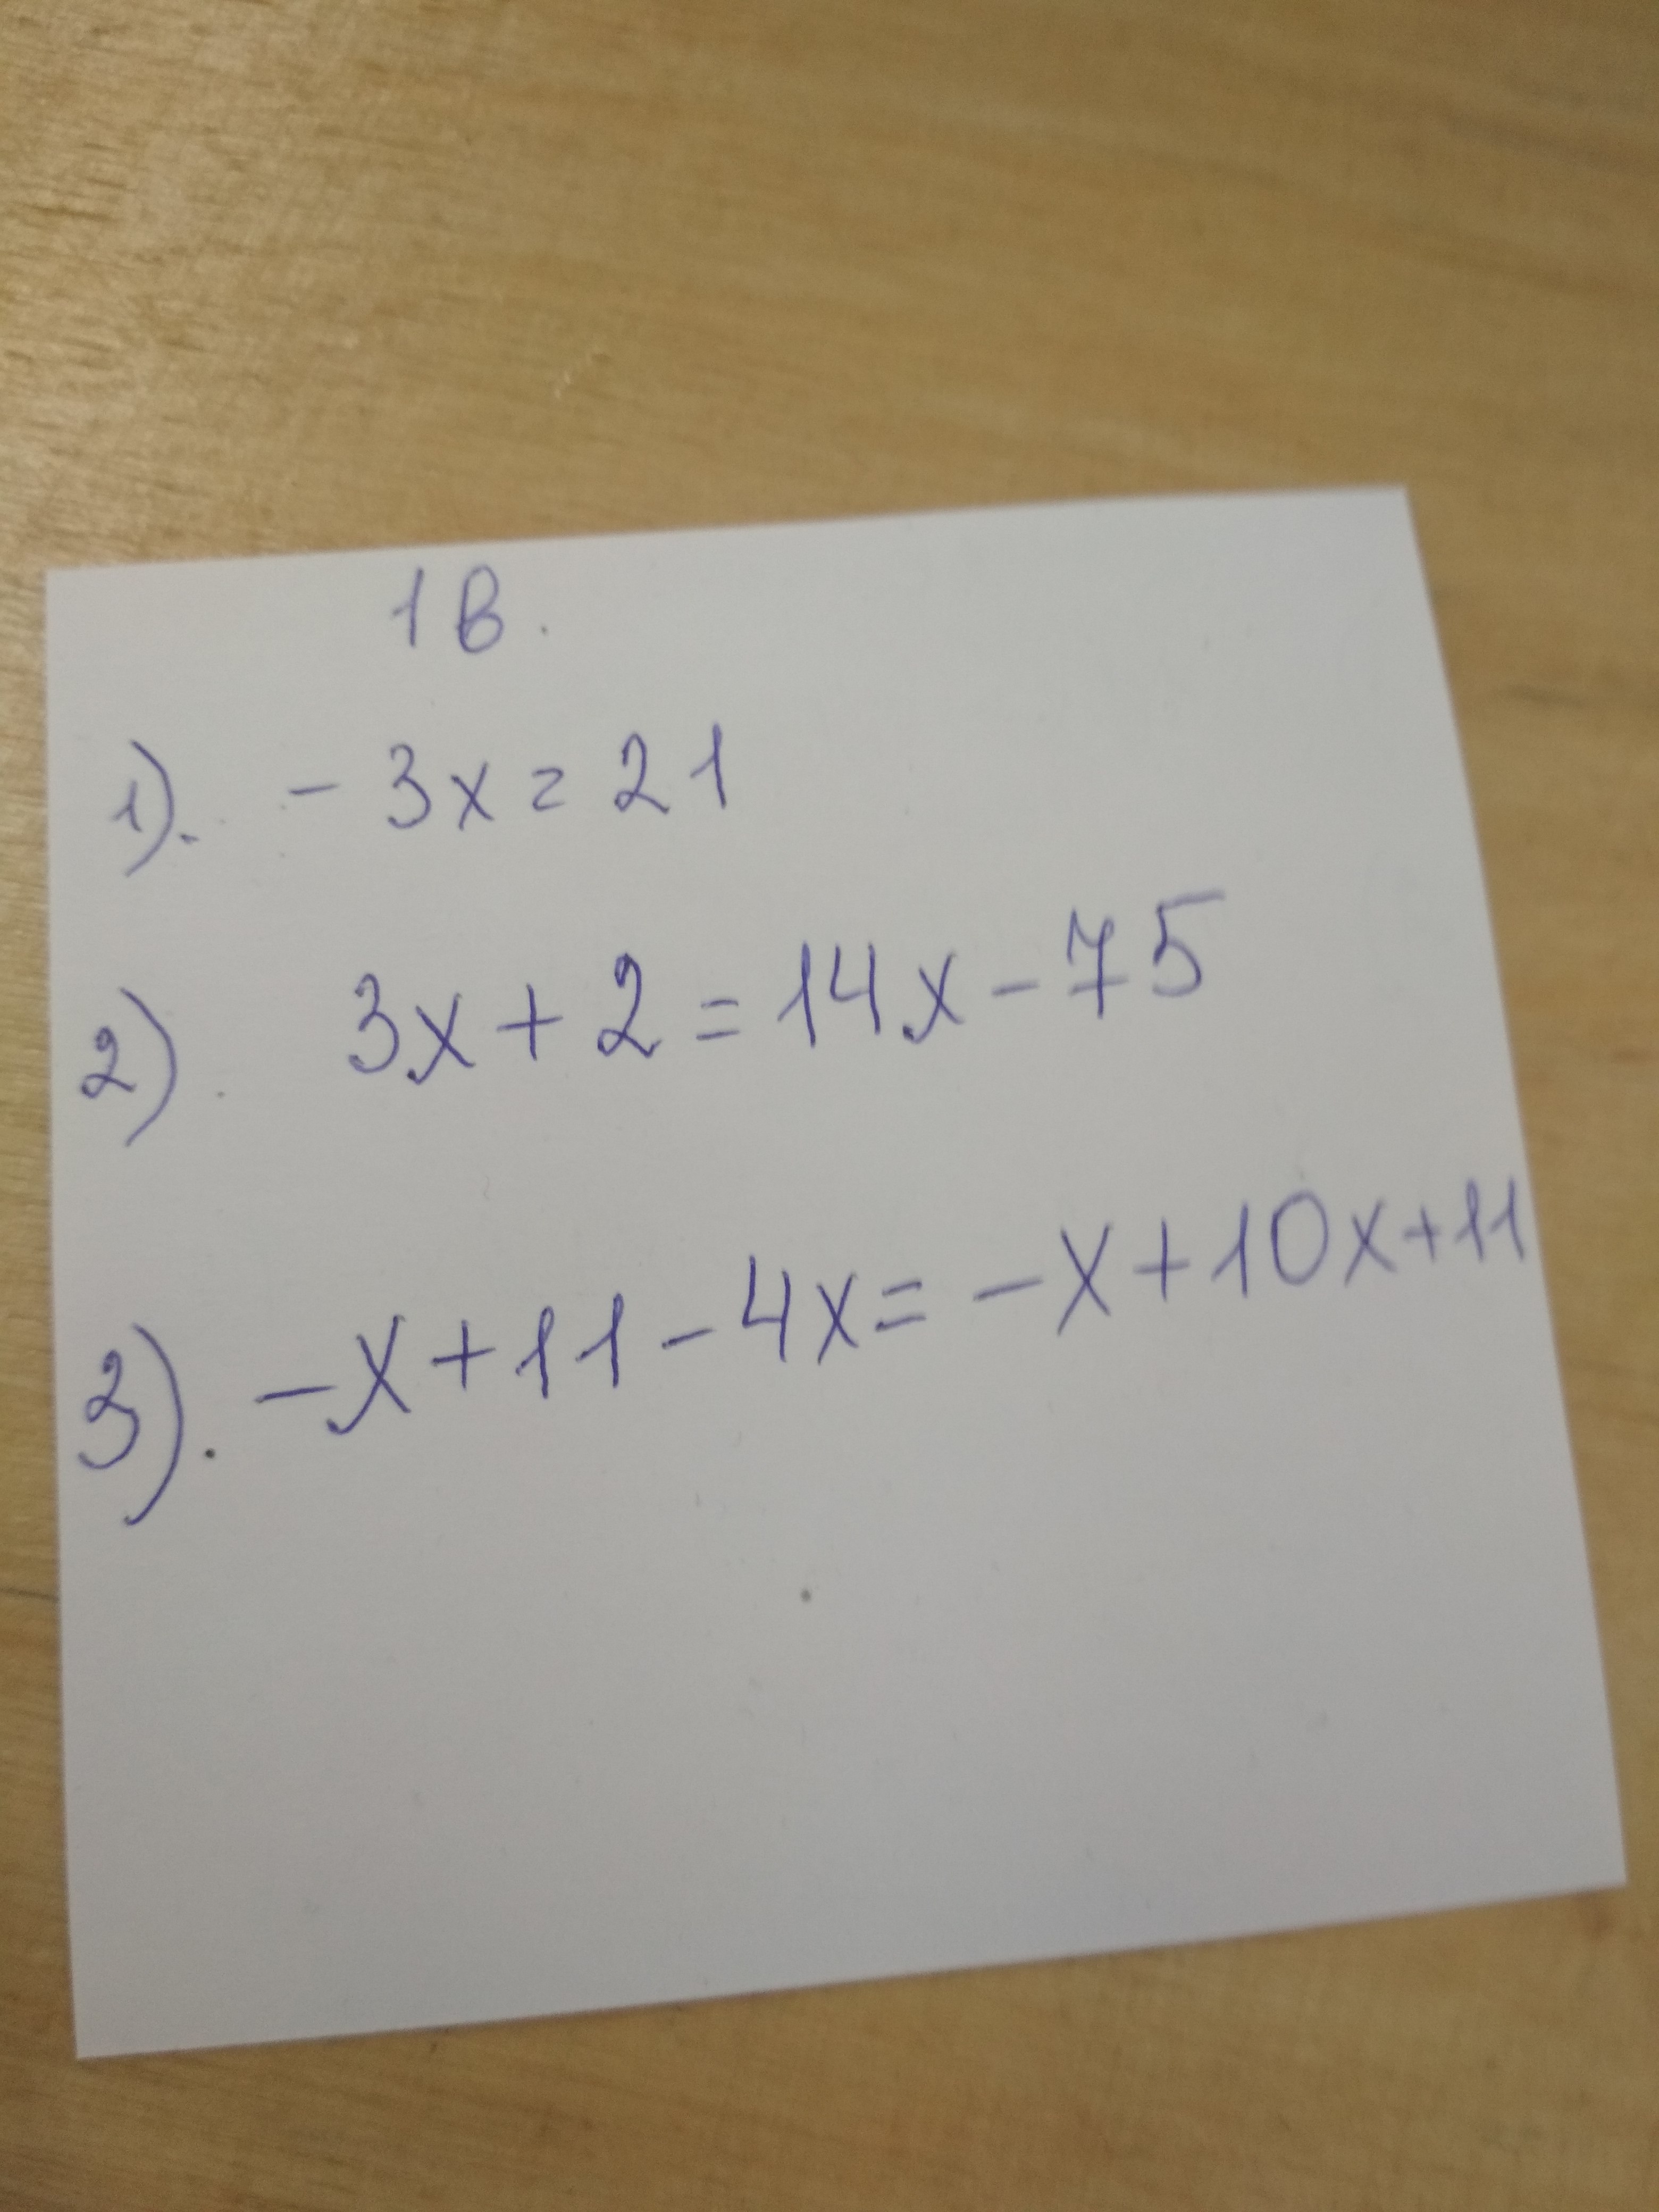 1 В.
1). - 3x = 21
2). 3x + 2 = 14x - 75
3). -x + 11 - 4x = -x + 10x + 11